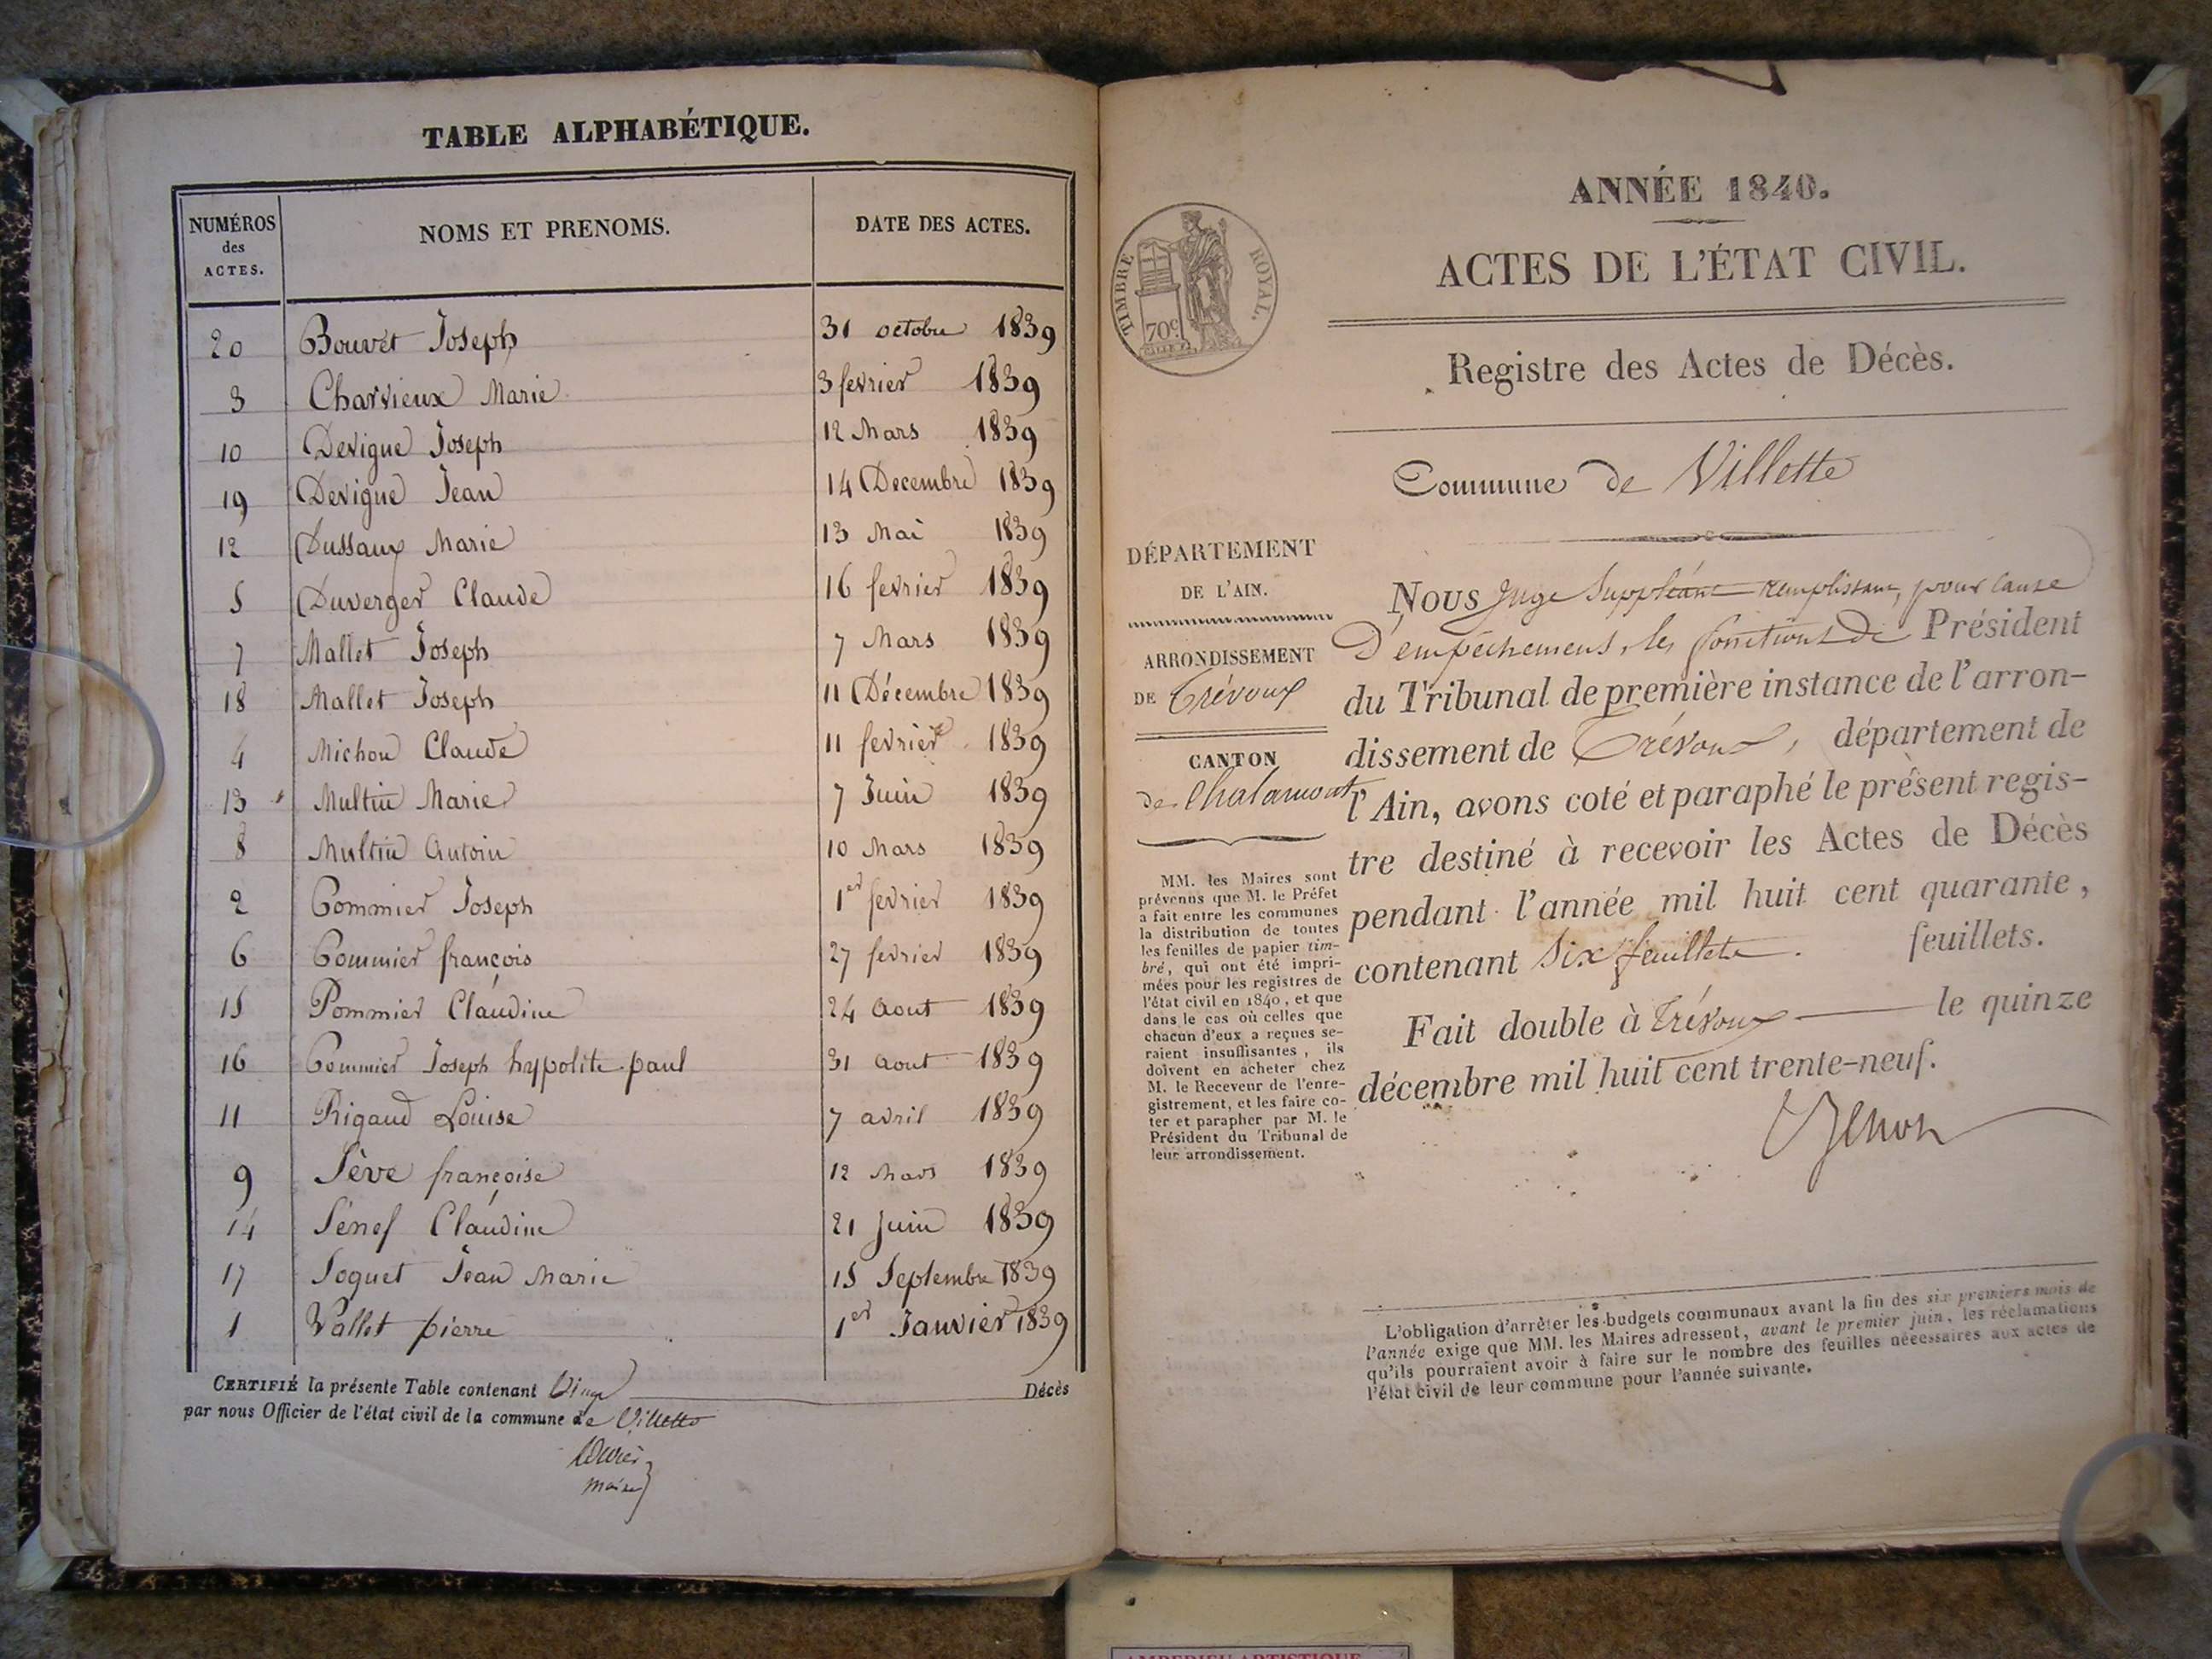 TABLE ALPHABÉTIQUE.
NUMÉROS des ACTES. NOMS ET PRENOMS. DATE DES ACTES.
20 Bouvet Joseph 31 octobre 1839
3 Charvieux Marie 3 fevrier 1839
10 Devigne Joseph 12 Mars 1839
19 Devigne Jean 14 Decembre 1839
12 Dussaux Marie 13 Mai 1839
5 Duverger Claude 16 fevrier 1839
7 Mallet Joseph 7 Mars 1839
18 Mallet Joseph 11 Décembre 1839
4 Michon Claude 11 fevrier 1839
13 Multin Marie 7 Juin 1839
8 Multin Antoin 10 Mars 1839
2 Pommier Joseph 1er fevrier 1839
6 Pommier françois 27 fevrier 1839
15 Pommier Claudine 24 Aout 1839
16 Pommier Joseph hypolite paul 31 Aout 1839
11 Rigaud Louise 7 avril 1839
9 Sève françoise 12 Mars 1839
14 Sénef Claudine 21 Juin 1839
17 Soquet Jean Marie 15 Septembre 1839
1 Vallet pierre 1er Janvier 1839
CERTIFIÉ la présente Table contenant Vingt Décès
par nous Officier de l'état civil de la commune de Villette
maire
ANNÉE 1840.
ACTES DE L'ÉTAT CIVIL.
TIMBRE ROYAL.
70c
Registre des Actes de Décès.
Commune de Villette
DÉPARTEMENT
DE L'AIN.
ARRONDISSEMENT
DE Trévoux
CANTON
de Chalamont
MM. les Maires sont
prévenus que M. le Préfet
a fait entre les communes
la distribution de toutes
les feuilles de papier tim-
bré, qui ont été impri-
mées pour les registres de
l'état civil en 1840, et que
dans le cas où celles que
chacun d'eux a reçues se-
raient insuffisantes, ils
doivent en acheter chez
M. le Receveur de l'enre-
gistrement, et les faire co-
ter et parapher par M. le
Président du Tribunal de
leur arrondissement.
Nous Juge Suppléant remplissant, pour cause
D'empêchement, les fonctions de Président
du Tribunal de première instance de l'arron-
dissement de Trévoux, département de
l'Ain, avons coté et paraphé le présent regis-
tre destiné à recevoir les Actes de Décès
pendant l'année mil huit cent quarante,
contenant Six feuillets. feuillets.
Fait double à Trévoux le quinze
décembre mil huit cent trente-neuf.
L'obligation d'arrêter les budgets communaux avant la fin des six premiers mois de
l'année exige que MM. les Maires adressent, avant le premier juin, les réclamations
qu'ils pourraient avoir à faire sur le nombre des feuilles nécessaires aux actes de
l'état civil de leur commune pour l'année suivante.
AMBERIEU ARTISTIQUE